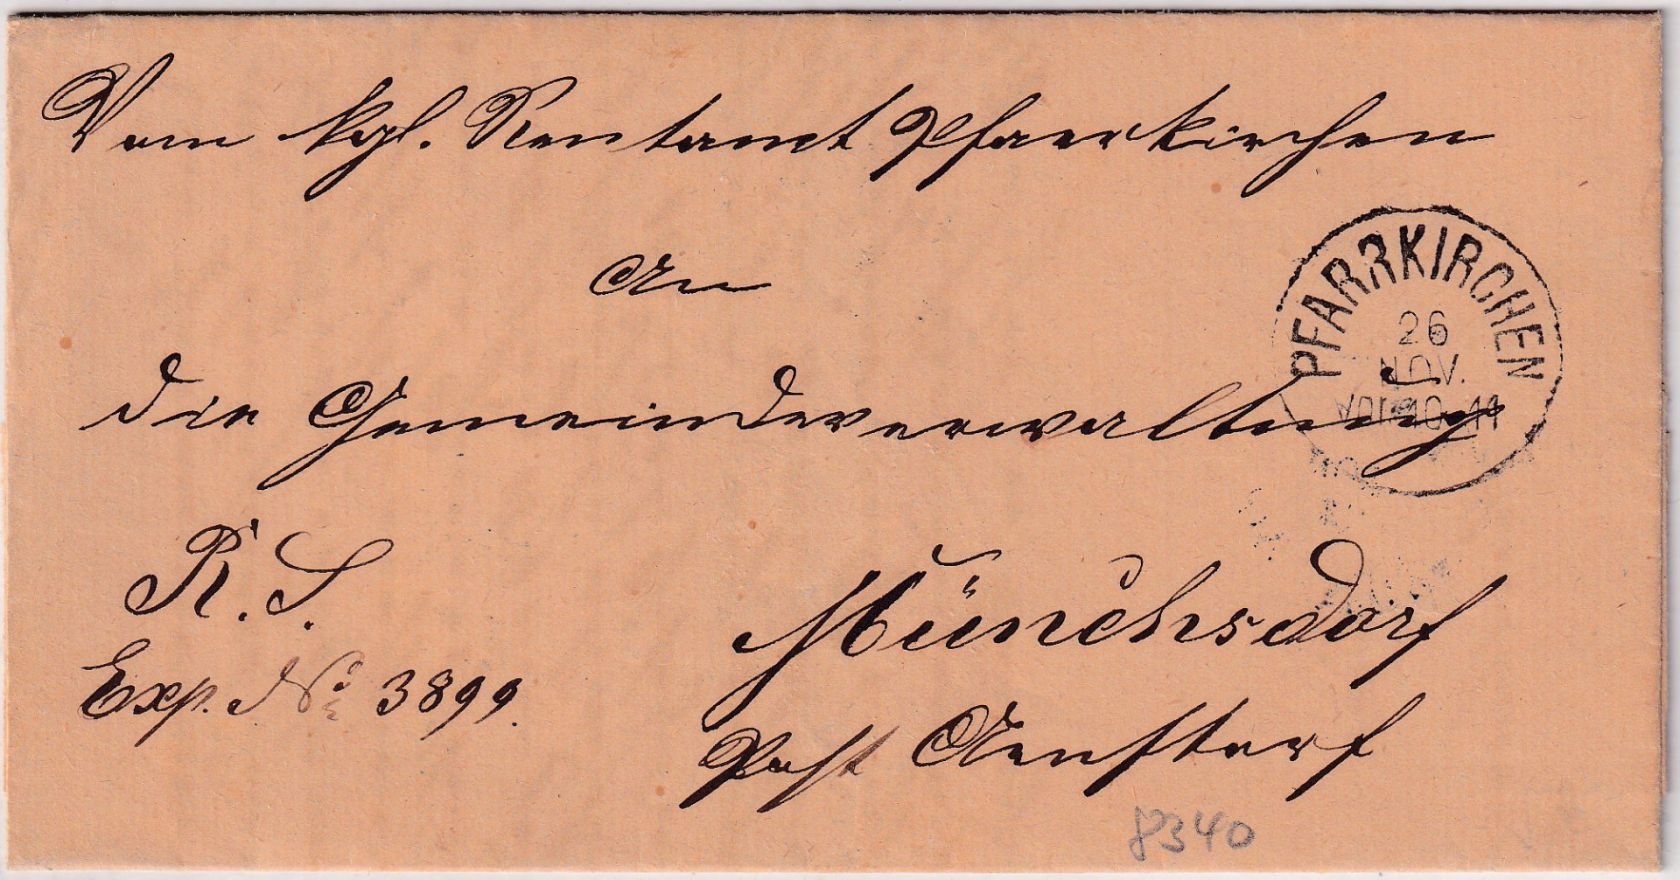 Vom kgl. Rentamt Pfarrkirchen
An
PFARRKIRCHEN
26
NOV.
VOR 10-11
die Gemeindeverwaltung
R. S.
Münchsdorf
Exp. No 3899.
Post Arnstorf
8340